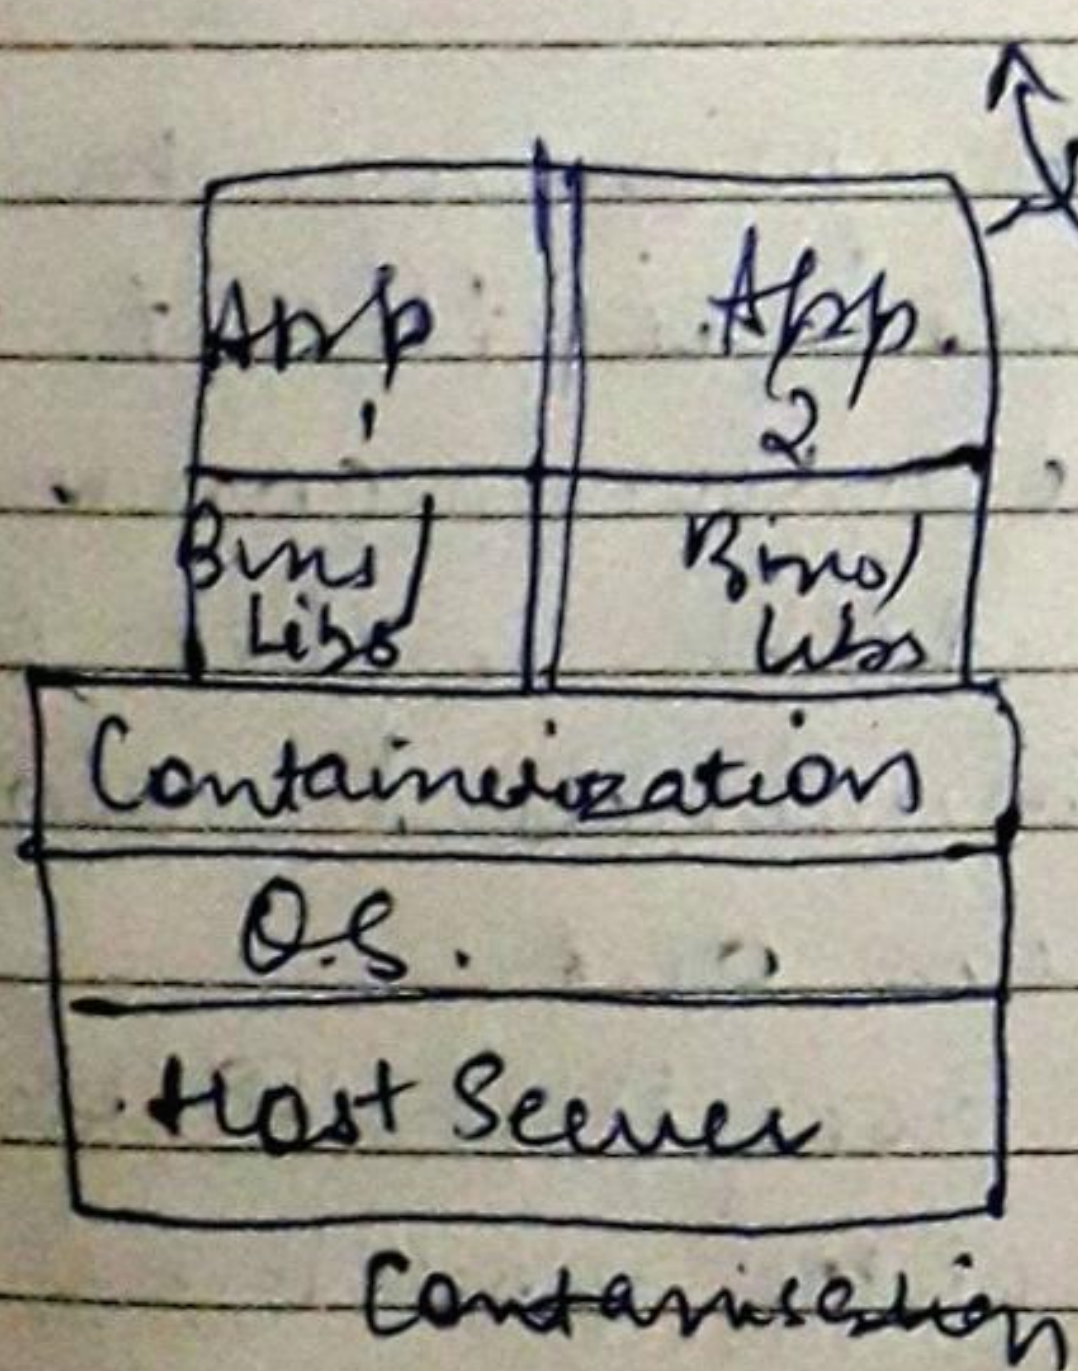 App App
1 2
Bins/ Bins/
Libs Libs
Containerization
O.S.
Host Server
Contanisation